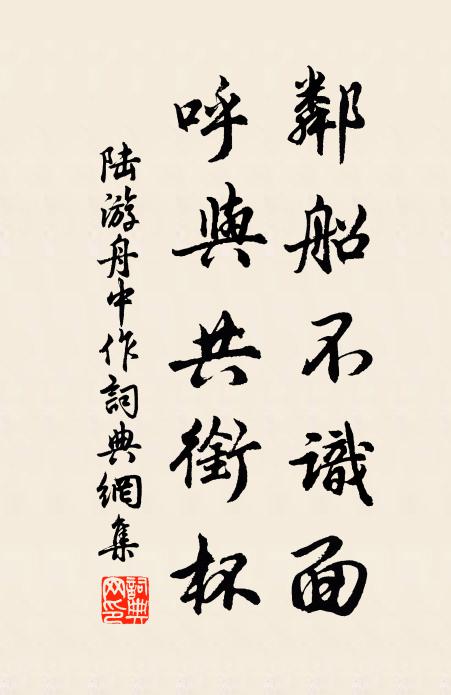 鄰船不識面
呼與共銜杯
陆游舟中作詞典網集
詞典网印